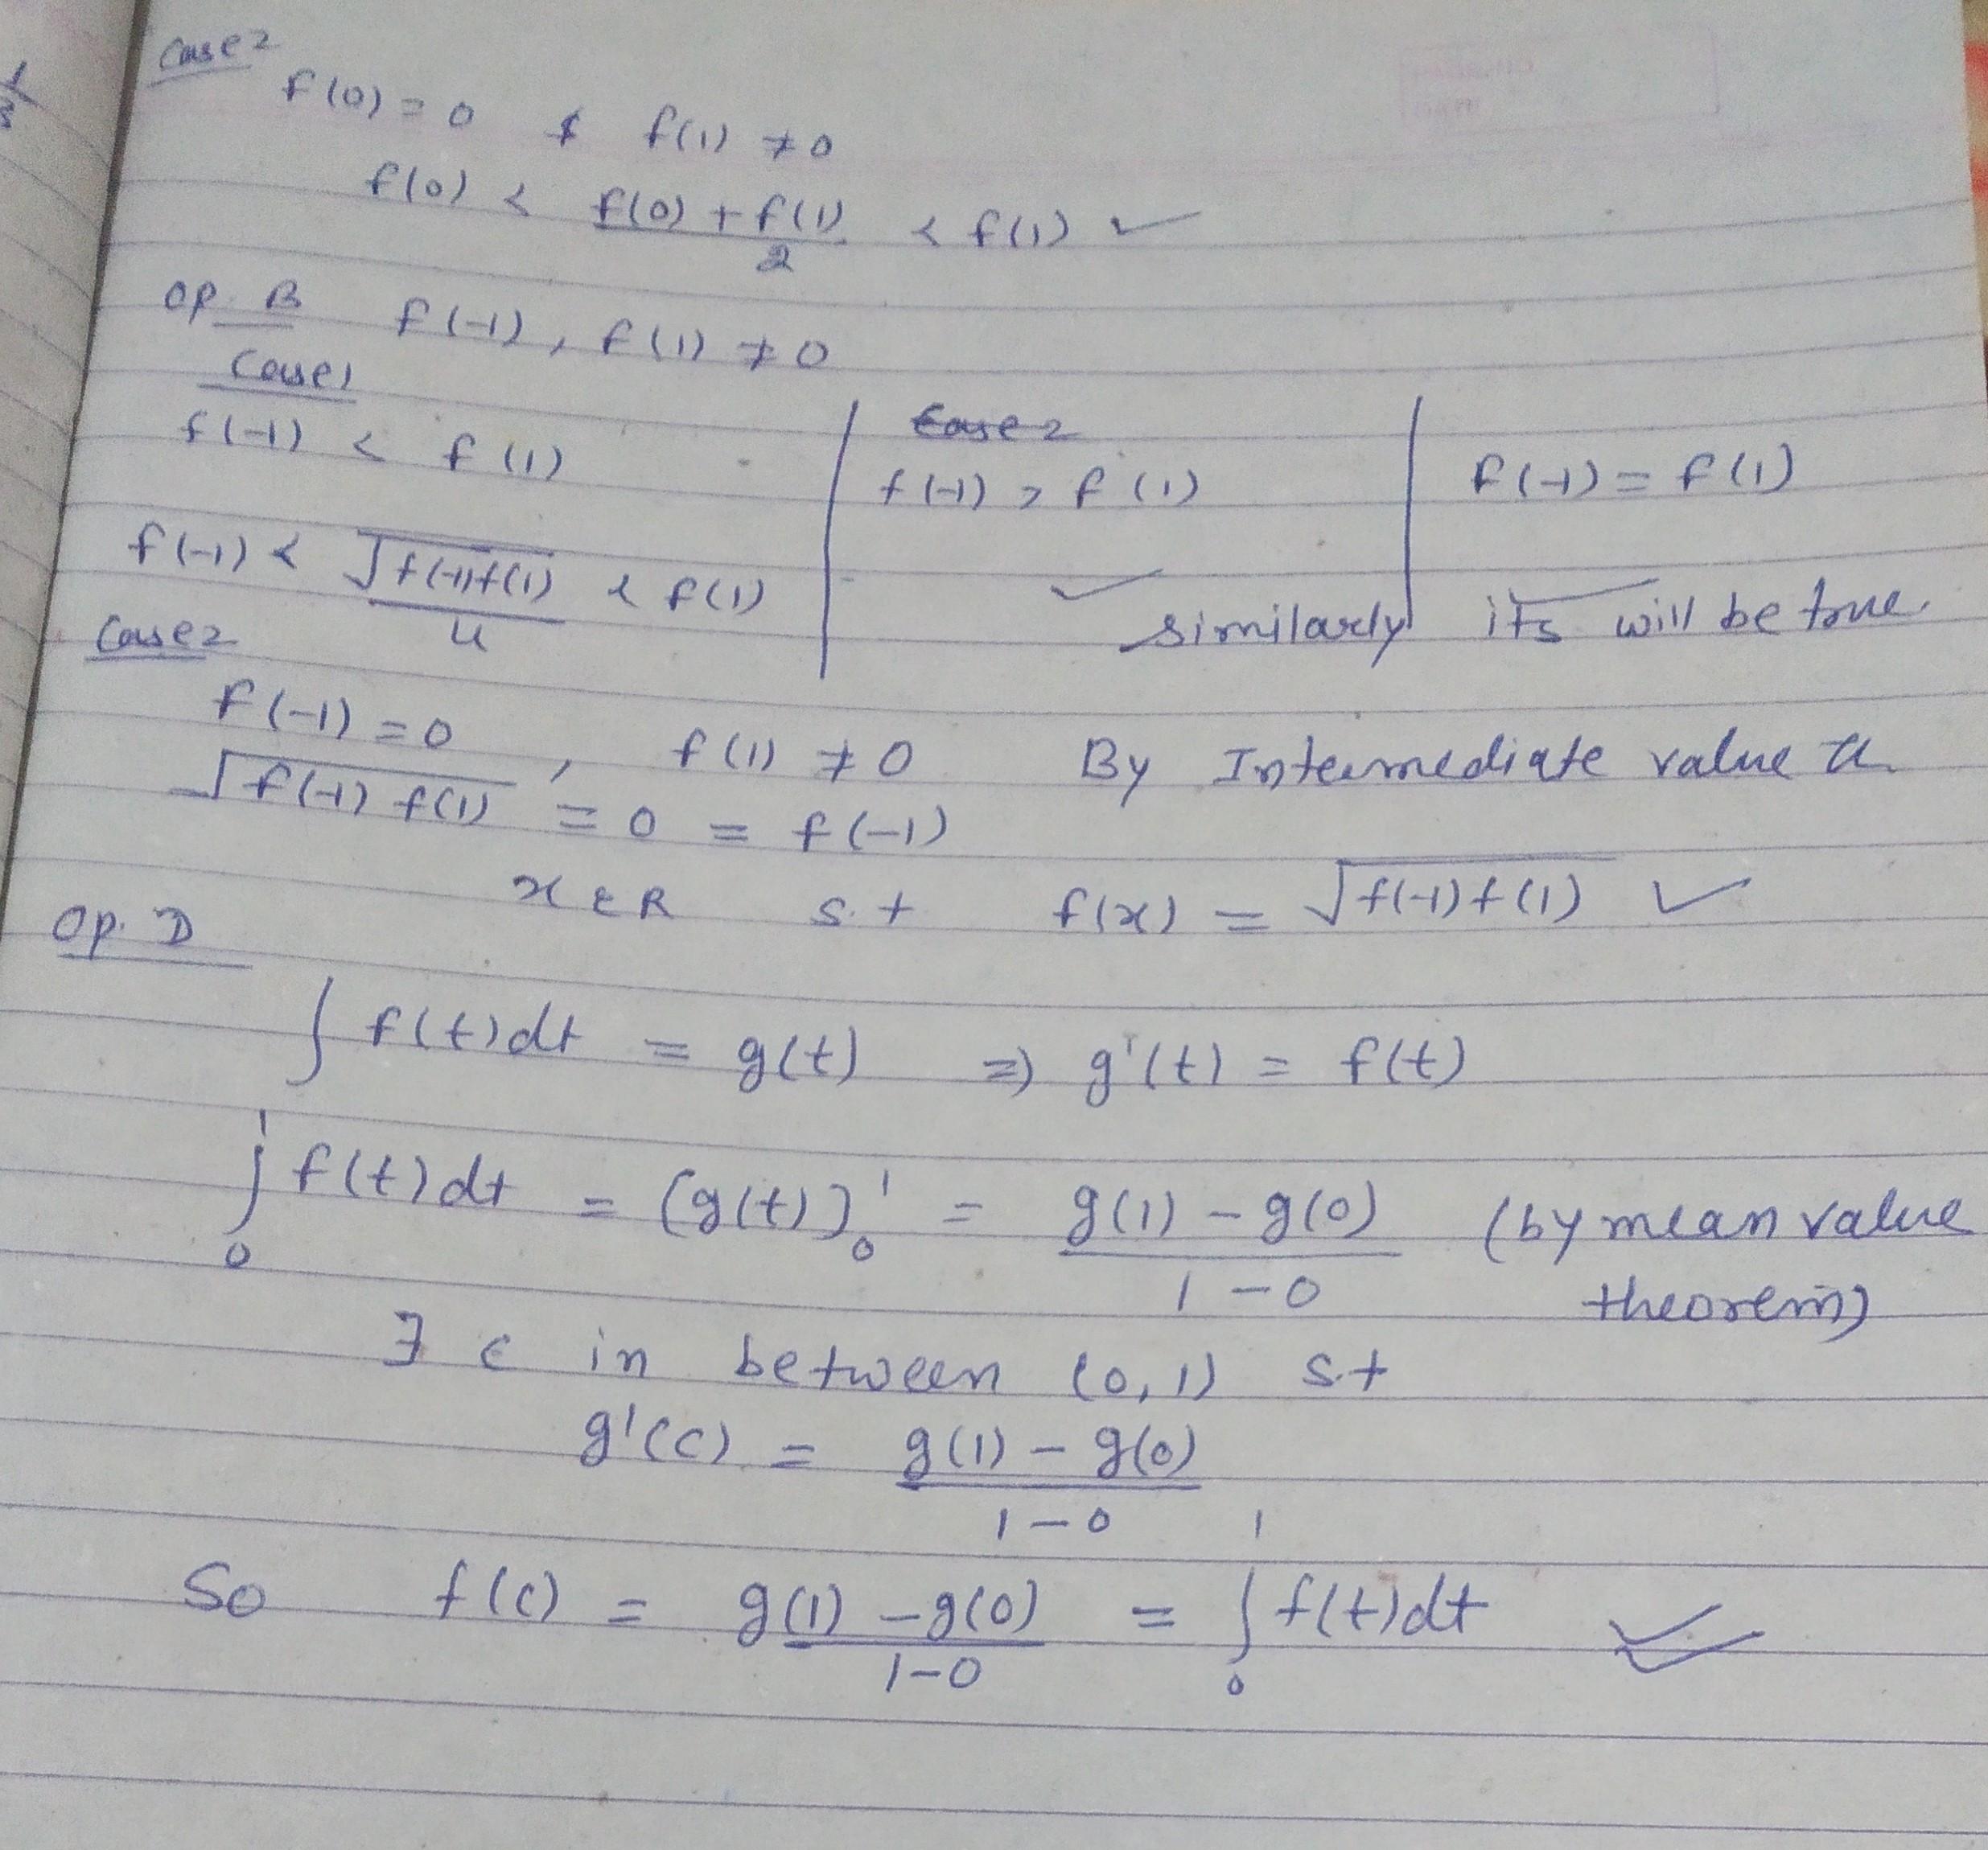 Case 2
f(0) = 0 & f(1) ≠ 0
f(0) < (f(0) + f(1))/2 < f(1) ✓
Op. B f(-1), f(1) ≠ 0
Case 1
f(-1) < f(1) | Case 2 f(-1) > f(1) | f(-1) = f(1)
f(-1) < √(f(-1)f(1)) < f(1) ✓ similarly its will be true.
u
Case 2
f(-1) = 0, f(1) ≠ 0 By Intermediate value
√(f(-1) f(1)) = 0 = f(-1)
x ∈ R s.t f(x) = √(f(-1)f(1)) ✓
Op. D
∫ f(t)dt = g(t) ⇒ g'(t) = f(t)
∫₀¹ f(t)dt = [g(t)]₀¹ = (g(1) - g(0))/(1-0) (by mean value
theorem)
∃ c in between (0,1) s.t
g'(c) = (g(1) - g(0))/(1-0)
So f(c) = (g(1) - g(0))/(1-0) = ∫₀¹ f(t)dt ✓